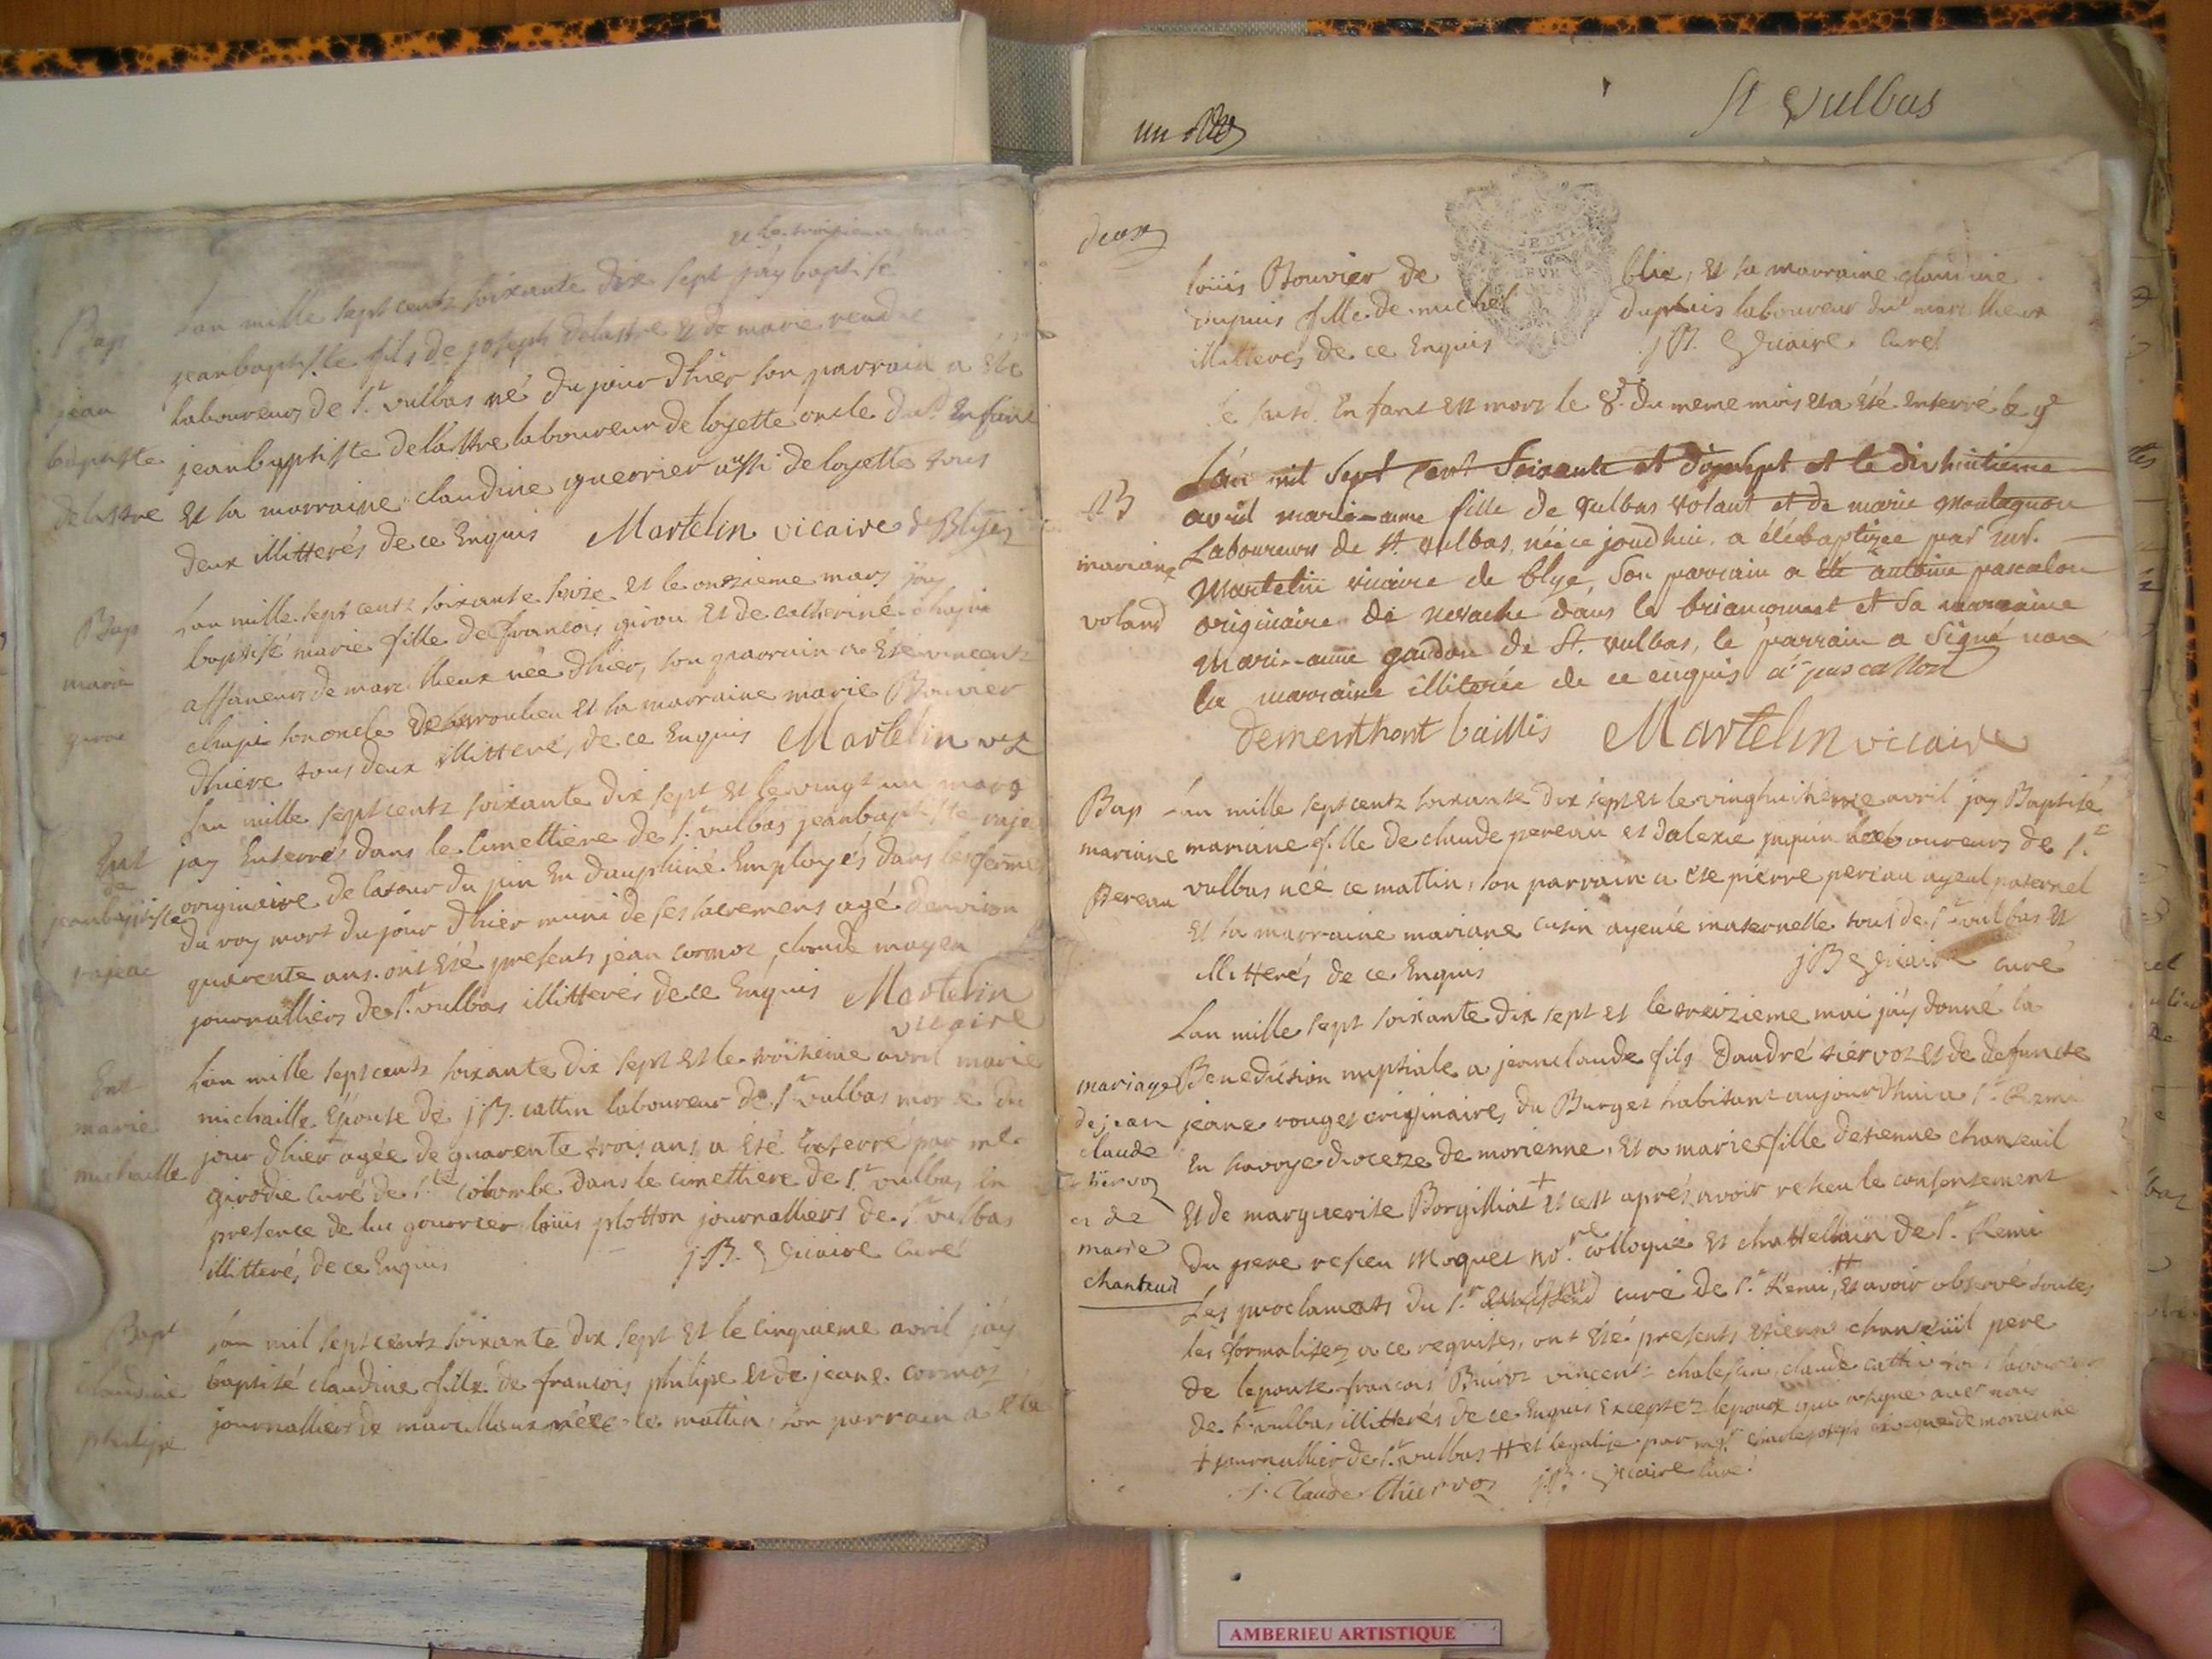 St vulbas
un
et le troisieme mars
Bap
Lan mille sept centz soixante dix sept jáy baptisé
jeanbaptiste fils de joseph delastre et de marie
jean
laboureurs de St. vulbas né du jour dhier son parrain a été
baptiste
jeanbaptiste delastre laboureur de loyette oncle dud. Enfant
delastre
Et sa marraine claudine guerrier aussi de loyette tous
deux illitterés de ce Enquis Martelin vicaire de Blyes
Bap
Lan mille sept centz soixante seize et le onzieme mars jáy
baptisé marie fille de francois girou Et de catherine chapie
marie
affaneurs de marcillieux née dhier, son parrain a Eté vincent
girou
chapie son oncle de et sa marraine marie Bouvier
dhiere tous deux illitteré, de ce Enquis Martelin vic
Lan mille sept centz soixante dix sept et le vingt un mars
Ent
jay Enterrés dans le cimettiere de St. vulbas jeanbaptiste
de
originaire de latour du pin En dauphiné Employés dans les fermes
jeanbaptiste
du roy mort du jour dhier muni de ses sacremens agé denviron
rajeac
quarente ans. ont Eté presents jean cormoz, claude moyen
journalliers de St. vulbas illitterés de ce Enquis Martelin
vicaire
Ent
Lan mille sept centz soixante dix sept et le troisieme avril marie
marie
michaille Epouse de j B. cattin laboureur de St. vulbas morte du
jour dhier agée de quarente trois ans a été Enterré par mr
michaille
girodie curé de Ste. colombe dans le cimettiere de St. vulbas En
presence de luc gourrier, loüis plotton journalliers de St. vulbas
illitteré, de ce Enquis j.B. curé
Bapt
Lan mil sept centz soixante dix sept Et le cinquieme avril jáy
claudine
baptisé claudine fille de francois philipe et de jeane cormoz
philipe
journalliers de marcillieux née ce mattin, son parrain a Eté
deux
loüis Bouvier de blie, Et sa marraine claudine
dupuis fille de michel dupuis laboureur dud marcillieux
illitterés de ce Enquis j B. curé
le susd. Enfant est mort le 8. du meme mois et a été enterré le 9e
B
L'an mil sept cent soixante et dixsept et le dixhuitieme
avril marie-anne fille de vulbas volant et de marie montagnon
mariane
Laboureurs de St. vulbas, née ce jourdhui a été baptizée par mr.
Martelin vicaire de blye, son parrain a été antoine pascalon
voland
originaire de nevache dans le brianconnet et sa marraine
Marie-anne gaudon de St. vulbas, le parrain a signé non
la marraine illiterée de ce enquis a pascallon
Dementhont baillis Martelin vicaire
Bap
Lan mille sept centz soixante dix sept et le vinghuitieme avril jay Baptisé
mariane
mariane fille de claude pereau et dalexie jaquin laboureurs de St.
Bereau
vulbas née ce mattin, son parrain a été pierre pereau ayeul paternel
Et sa marraine mariane cusin ayeule maternelle tous de St. vulbas et
illitterés de ce Enquis j B curé
Lan mille sept soixante dix sept et le treizieme mai jáy donné la
mariage
Benediction nuptiale a jeanclaude fils dandré tiervoz et de defuncte
de jean
jeane rouget originaires du Burget habitant aujourdhui a St. Remi
claude
En savoye dioceze de morienne, Et a marie fille detienne chanteuil
tiervoz
Et de marguerite Borgilliat + et cest aprés avoir receu le consentement
et de
du pere receu moquet no.re colloqué Et chattellain de St. Remi
marie
Les proclamats du Sr. curé de St. Remi, # Et avoir observé toutes
chanteuil
les formalitez a ce requises, ont été presents etienne chanteüil pere
de lepouse francois vincent claude cattin tous laboureurs
de St. vulbas illitterés de ce Enquis Exceptez lepoux qui a signé avec nous
+ journallier de St. vulbas # et legalise par mgr. eveque de morienne
j. Claude thiervoz j.B. curé
AMBERIEU ARTISTIQUE